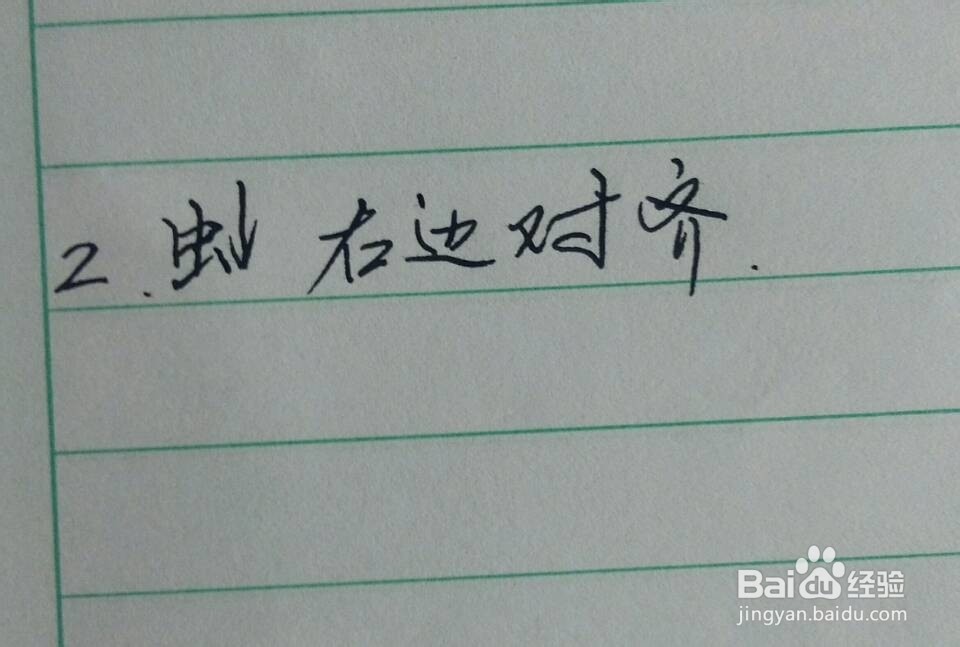 2. 虫 右边对齐.
Bai du 经验
jingyan.baidu.com